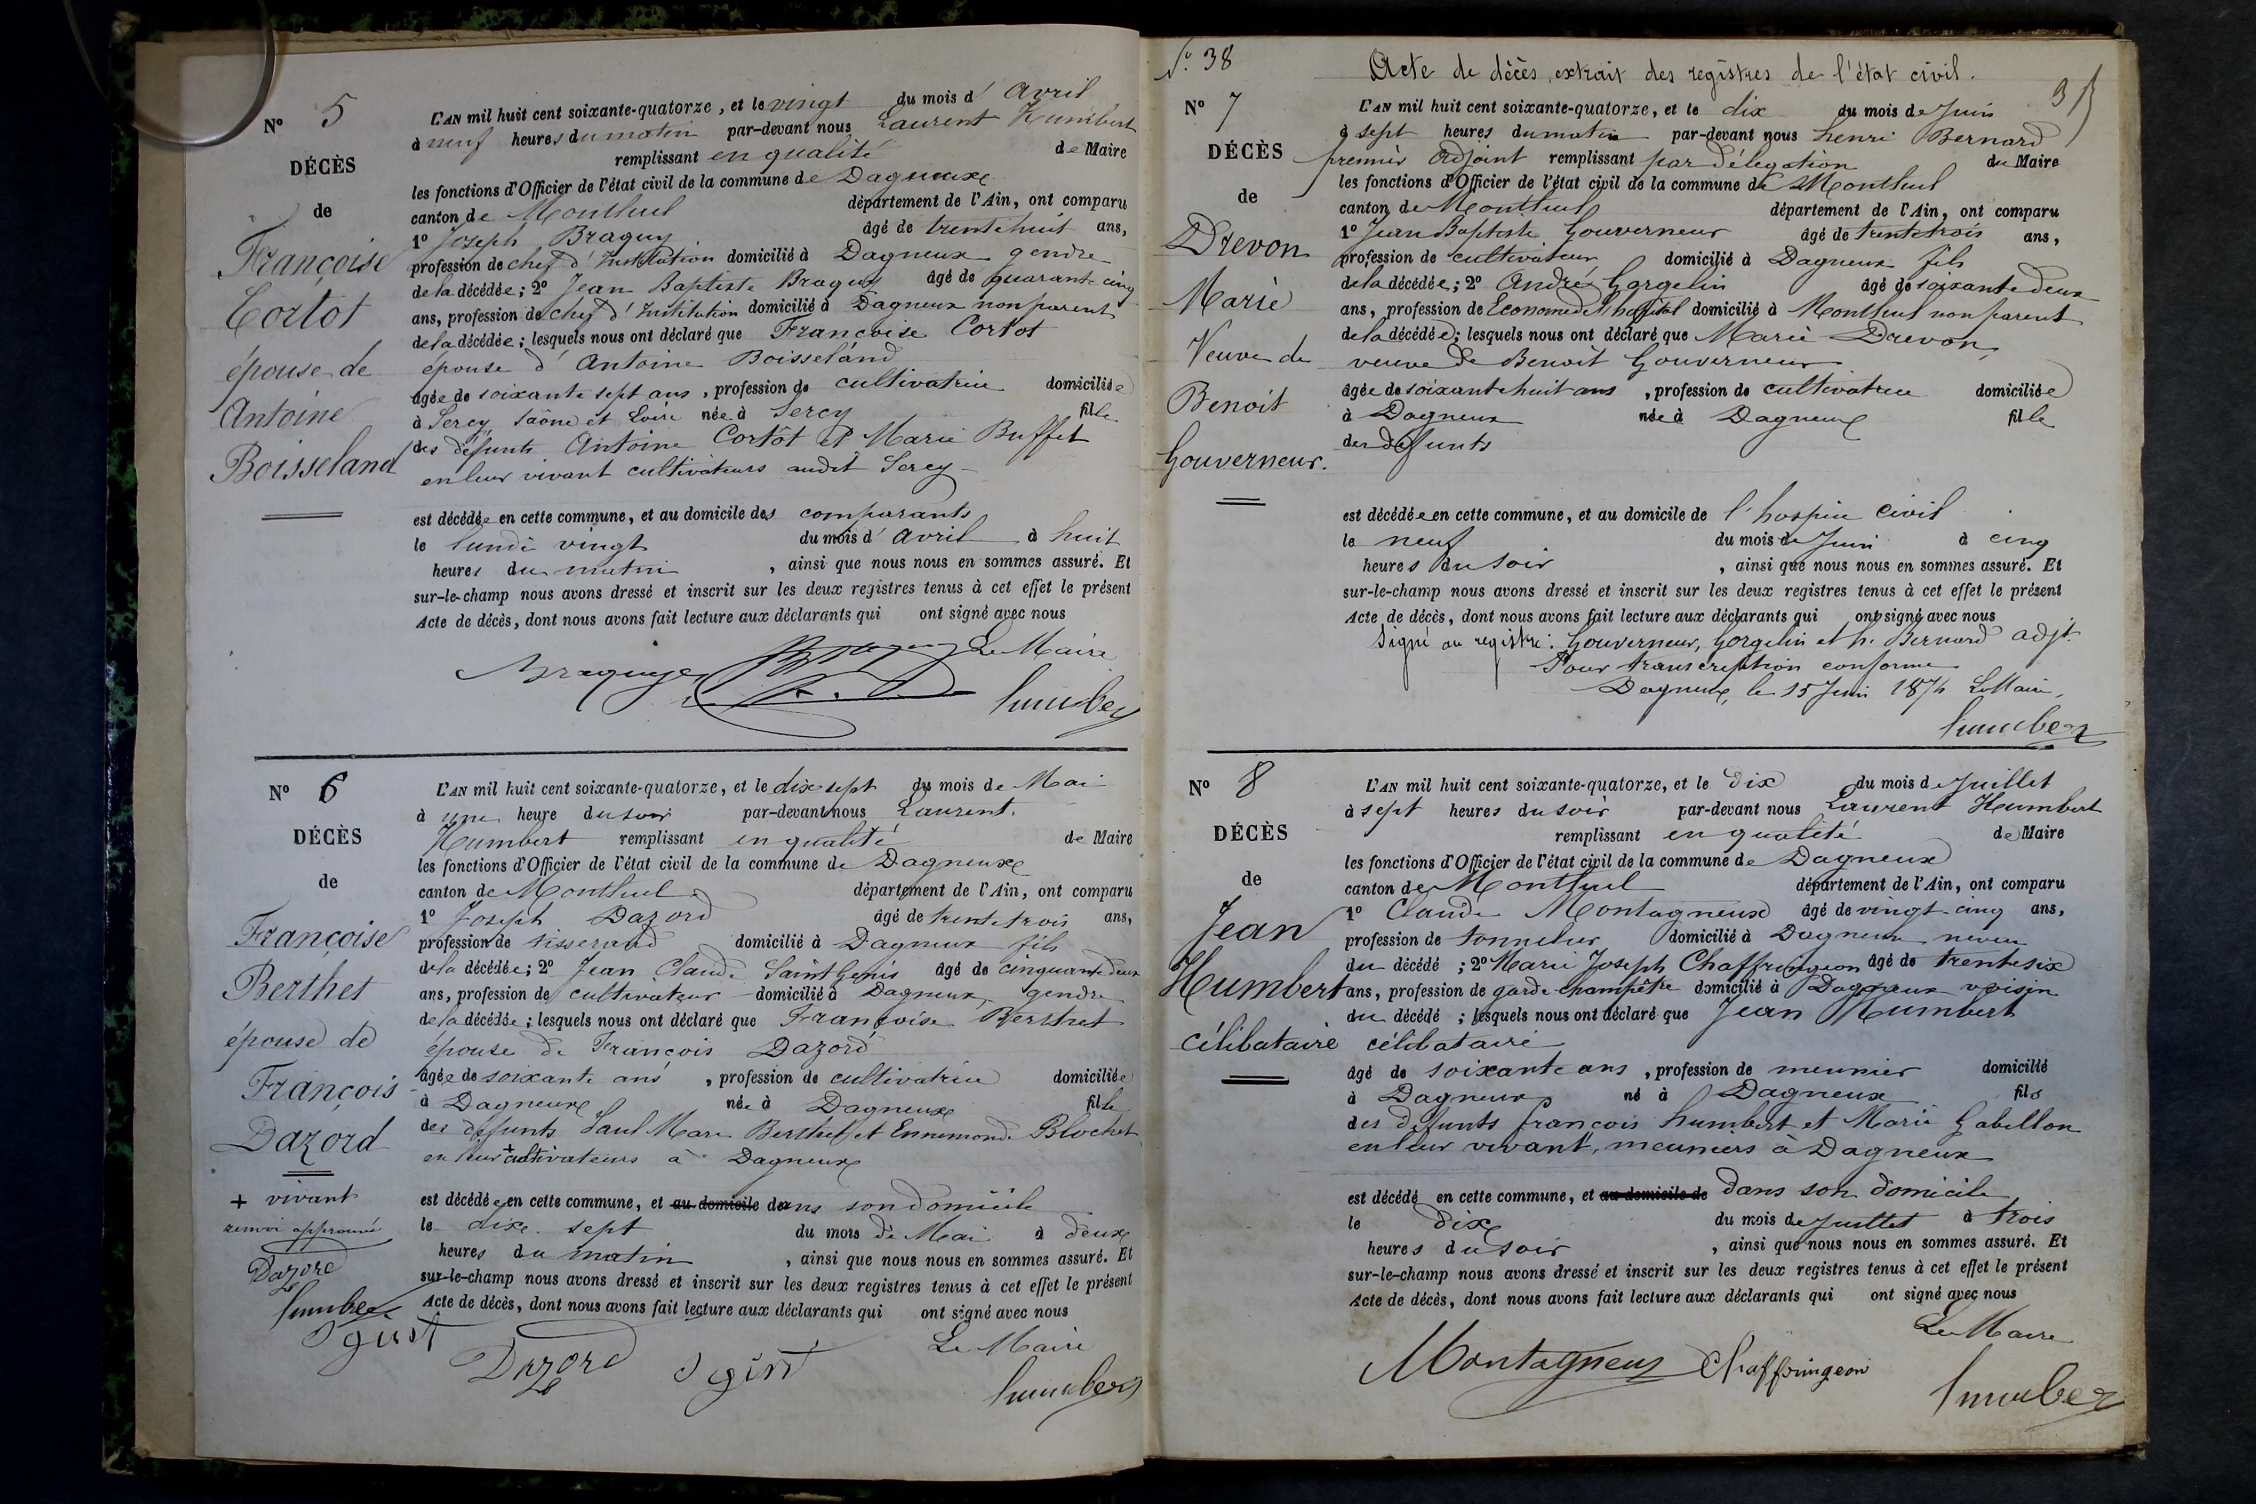 N° 5
DÉCÈS
de
Françoise
Cortot
épouse de
Antoine
Boisseland
L'AN mil huit cent soixante-quatorze, et le vingt du mois d' Avril
à neuf heures du matin par-devant nous Laurent Humbert
remplissant en qualité de Maire
les fonctions d'Officier de l'état civil de la commune de Dagneux
canton de Montluel département de l'Ain, ont comparu
1° Joseph Braguy âgé de trente huit ans,
profession de chef d'Institution domicilié à Dagneux gendre
de la décédée; 2° Jean Baptiste Braguy âgé de quarante cinq
ans, profession de chef d'Institution domicilié à Dagneux non parent
de la décédée; lesquels nous ont déclaré que Françoise Cortot
épouse d'Antoine Boisseland
âgée de soixante sept ans, profession de cultivatrice domiciliée
à Sercy, Saône et Loire née à Sercy fille
des défunts Antoine Cortot et Marie Buffet
en leur vivant cultivateurs audit Sercy
est décédée en cette commune, et au domicile des comparants
le lundi vingt du mois d' avril à huit
heures du matin, ainsi que nous nous en sommes assuré. Et
sur-le-champ nous avons dressé et inscrit sur les deux registres tenus à cet effet le présent
Acte de décès, dont nous avons fait lecture aux déclarants qui ont signé avec nous
Le Maire
Humbert
N° 6
DÉCÈS
de
Françoise
Berthet
épouse de
François
Dazord
+ vivant
renvoi approuvé
Dazord
Humbert
L'AN mil huit cent soixante-quatorze, et le dix sept du mois de Mai
à une heure du soir par-devant nous Laurent
Humbert remplissant en qualité de Maire
les fonctions d'Officier de l'état civil de la commune de Dagneux
canton de Montluel département de l'Ain, ont comparu
1° Joseph Dazord âgé de trente trois ans,
profession de tisserand domicilié à Dagneux fils
de la décédée; 2° Jean Claude Saint Genis âgé de cinquante deux
ans, profession de cultivateur domicilié à Dagneux gendre
de la décédée; lesquels nous ont déclaré que Françoise Berthet
épouse de François Dazord
âgée de soixante ans, profession de cultivatrice domiciliée
à Dagneux née à Dagneux fille
des défunts Paul Marie Berthet et Ennemonde Blochet
en leur + cultivateurs à Dagneux
est décédée en cette commune, et au domicile dans son domicile
le dix sept du mois de Mai à deux
heures du matin, ainsi que nous nous en sommes assuré. Et
sur-le-champ nous avons dressé et inscrit sur les deux registres tenus à cet effet le présent
Acte de décès, dont nous avons fait lecture aux déclarants qui ont signé avec nous
Le Maire
Dazord
Humbert
N° 38
Acte de décès, extrait des registres de l'état civil.
N° 7
DÉCÈS
de
Drevon
Marie
Veuve de
Benoit
Gouverneur.
L'AN mil huit cent soixante-quatorze, et le dix du mois de Juin
à sept heures du matin par-devant nous henri Bernard
premier adjoint remplissant par délégation du Maire
les fonctions d'Officier de l'état civil de la commune de Montluel
canton de Montluel département de l'Ain, ont comparu
1° Jean Baptiste Gouverneur âgé de trente trois ans,
profession de cultivateur domicilié à Dagneux fils
de la décédée; 2° André Gorgelin âgé de soixante deux
ans, profession de Econome de l'hôpital domicilié à Montluel non parent
de la décédée; lesquels nous ont déclaré que Marie Drevon,
veuve de Benoit Gouverneur
âgée de soixante huit ans, profession de cultivatrice domiciliée
à Dagneux née à Dagneux fille
des défunts
est décédée en cette commune, et au domicile de l'hospice civil
le neuf du mois de Juin à cinq
heures du soir, ainsi que nous nous en sommes assuré. Et
sur-le-champ nous avons dressé et inscrit sur les deux registres tenus à cet effet le présent
Acte de décès, dont nous avons fait lecture aux déclarants qui ont signé avec nous
Signé au registre: Gouverneur, Gorgelin et h. Bernard adjt.
Pour transcription conforme
Dagneux, le 15 Juin 1874 Le Maire,
Humbert
N° 8
DÉCÈS
de
Jean
Humbert
célibataire
L'AN mil huit cent soixante-quatorze, et le dix du mois de Juillet
à sept heures du soir par-devant nous Laurent Humbert
remplissant en qualité de Maire
les fonctions d'Officier de l'état civil de la commune de Dagneux
canton de Montluel département de l'Ain, ont comparu
1° Claude Montagneux âgé de vingt cinq ans,
profession de tonnelier domicilié à Dagneux neveu
du décédé; 2° Marie Joseph Chaffringeon âgé de trente six
ans, profession de garde champêtre domicilié à Dagneux voisin
du décédé; lesquels nous ont déclaré que Jean Humbert
célibataire
âgé de soixante ans, profession de meunier domicilié
à Dagneux né à Dagneux fils
des défunts françois humbert et Marie Gabillon
en leur vivant, meuniers à Dagneux
est décédé en cette commune, et au domicile de dans son domicile
le dix du mois de Juillet à trois
heures du soir, ainsi que nous nous en sommes assuré. Et
sur-le-champ nous avons dressé et inscrit sur les deux registres tenus à cet effet le présent
Acte de décès, dont nous avons fait lecture aux déclarants qui ont signé avec nous
Le Maire
Montagneux Chaffringeon
Humbert